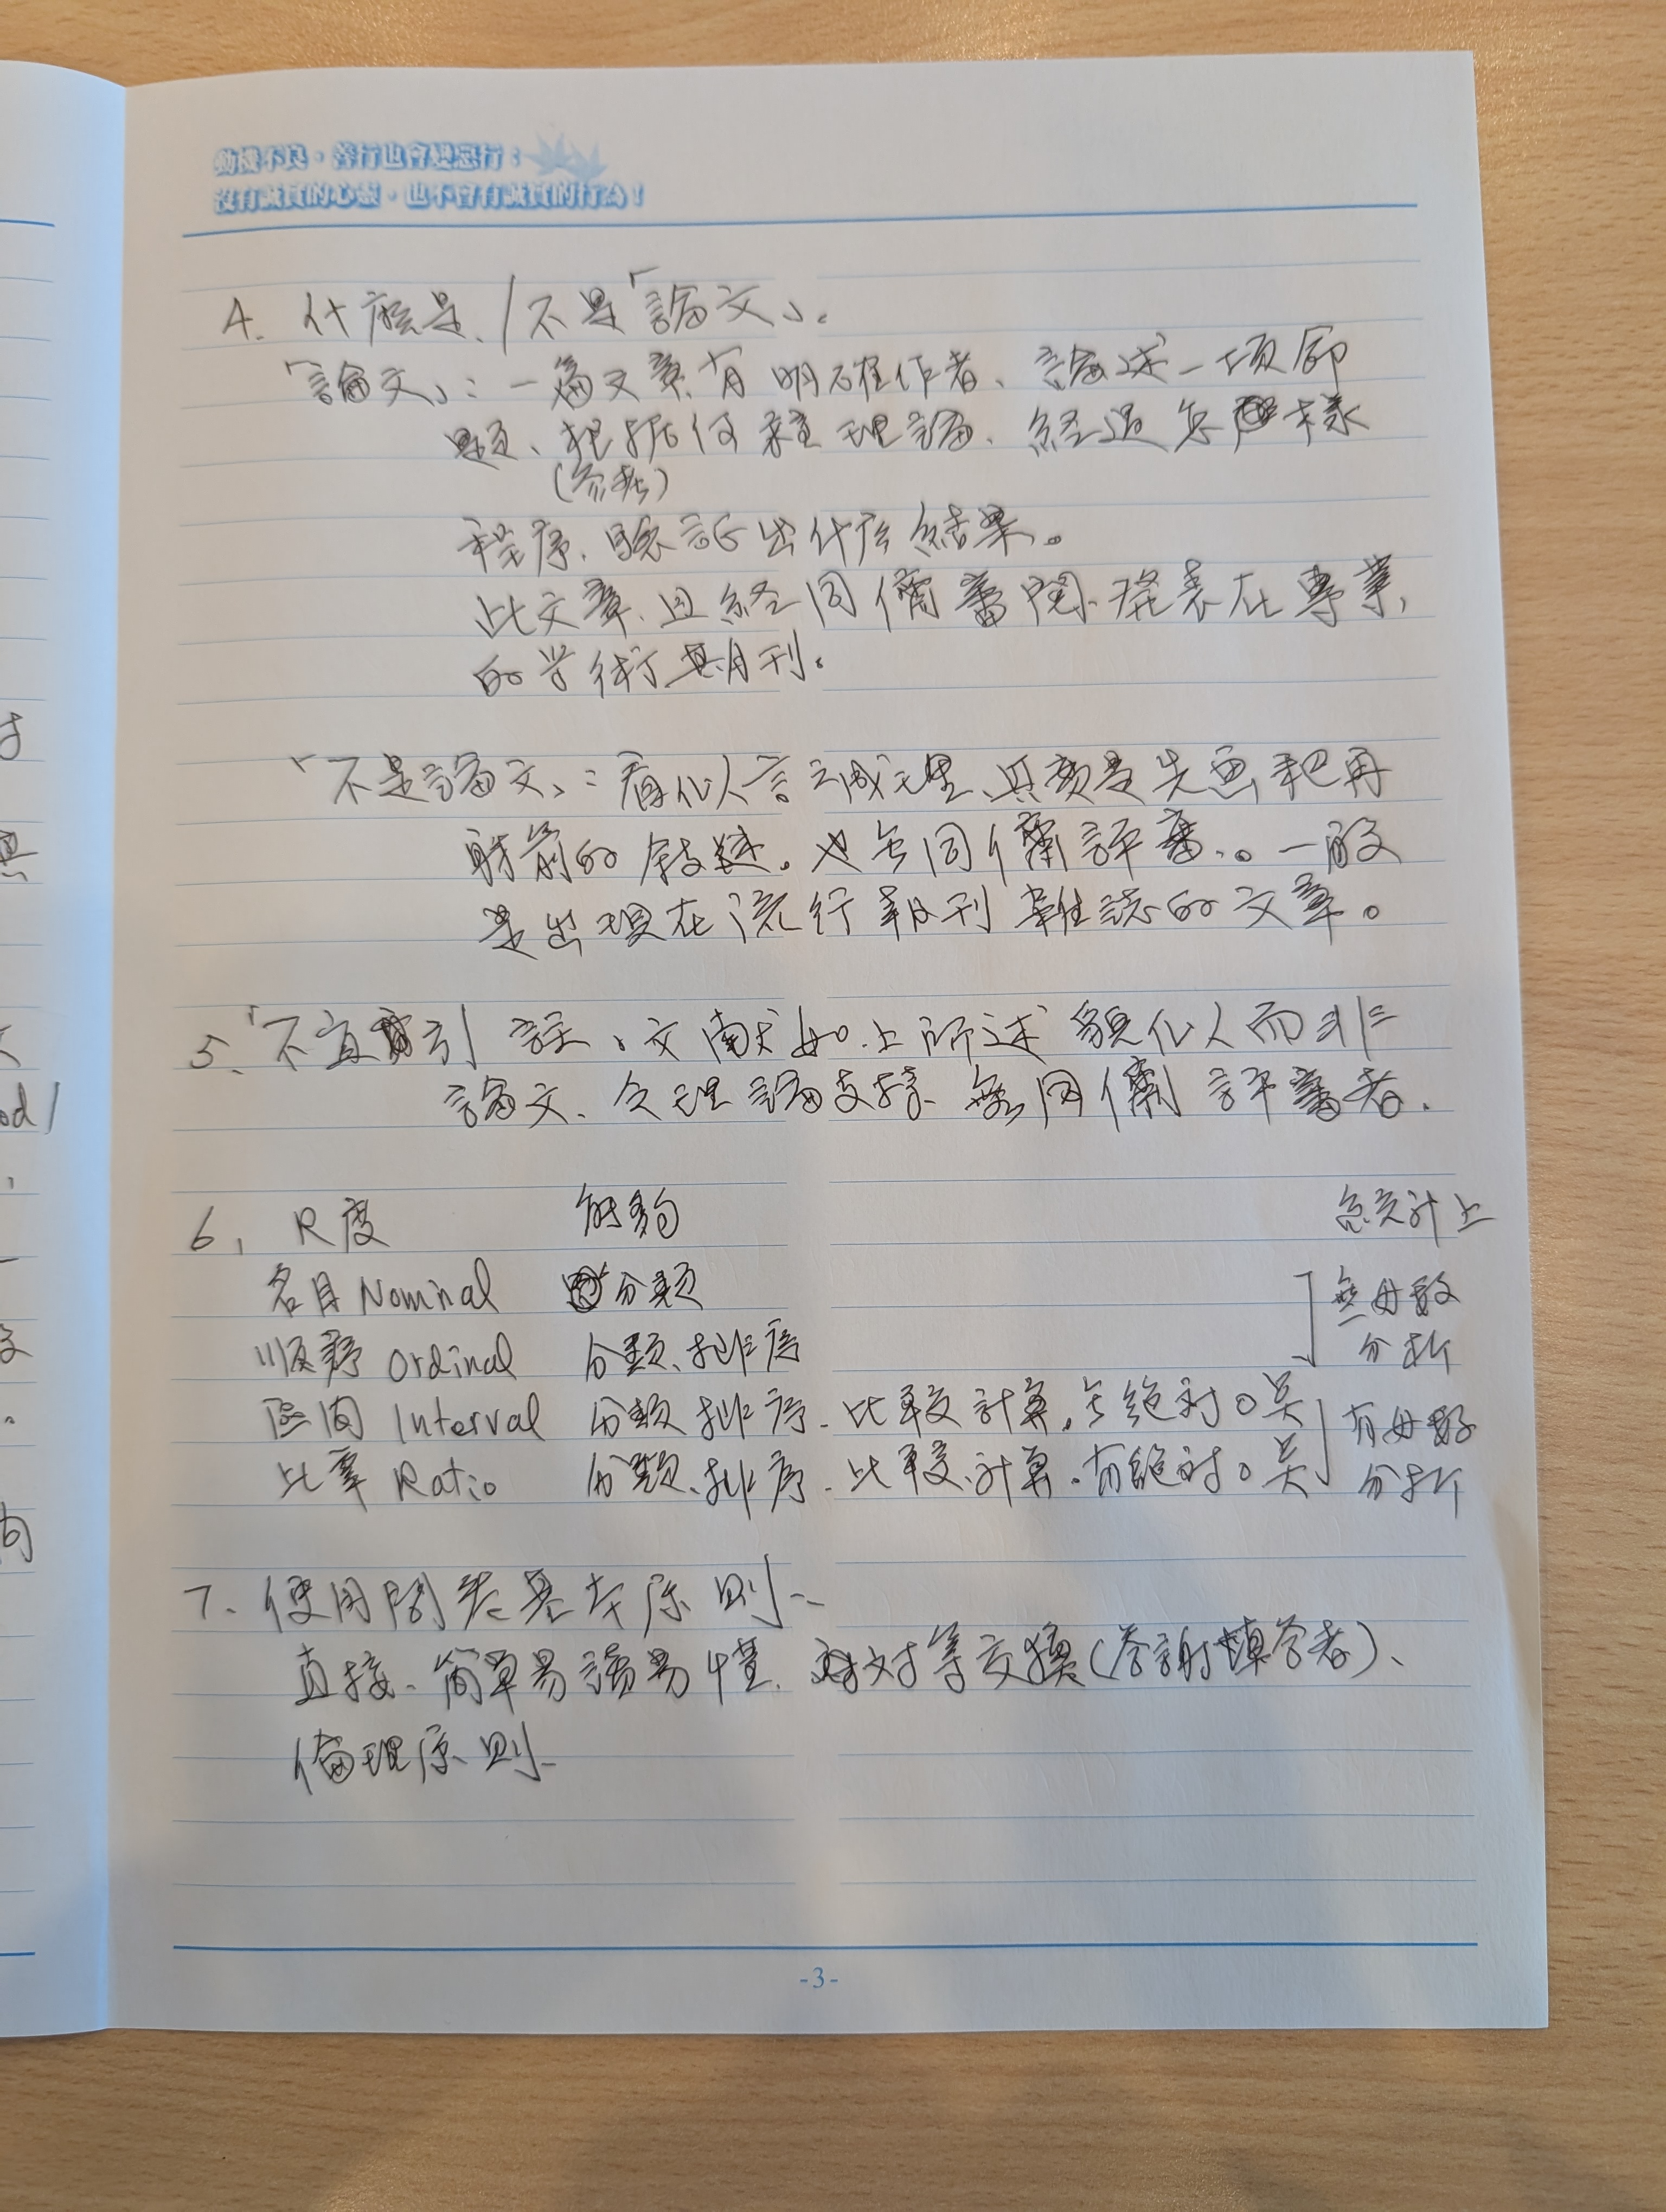 動機不良，善行也會變惡行；
沒有誠實的心靈，也不會有誠實的行為！
4. 什麼是/不是「論文」。
「論文」：一篇文章有明確作者、論述一項命
題、根據何種理論、經過怎樣
(參考)
程序、驗証出什麼結果。
此文章且經同儕審閱、發表在專業
的学術期刊。
「不是論文」：看似言之成理、其實是先画靶再
射箭的敘述。也无同儕評審。一般
是出現在流行報刊雜誌的文章。
5. 「不宜引註」文献如上所述貌似而非
論文、欠理論支持、無同儕評審者.
6. 尺度
名目 Nominal 分類
順序 Ordinal 分類、排序
區间 Interval 分類、排序、比較計算，无絕对0点
比率 Ratio 分類、排序、比較、計算，有絕对0点
統計上
無母數
分析
有母數
分析
7. 使用問卷基本原則
直接、簡單易讀易懂、对等交換(答謝填答者)、
倫理原則
-3-
od/